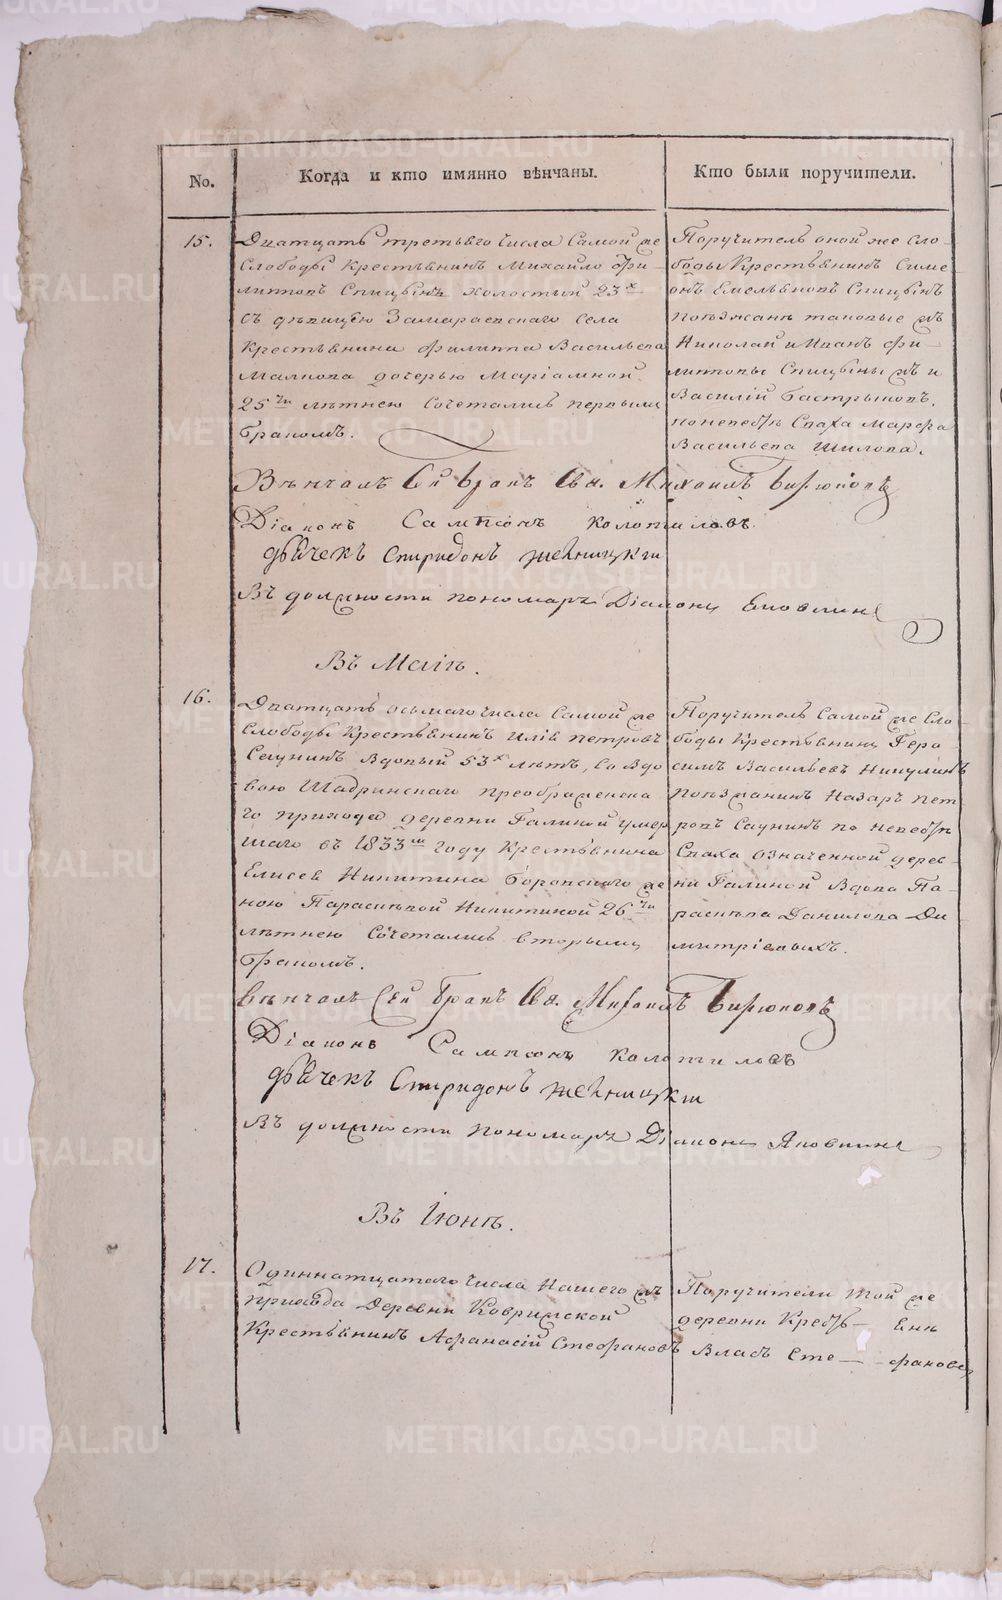 No.
Когда и кто имянно вѣнчаны.
Кто были поручители.
15.
Дватцать третьяго числа Самой же
Слободы Крестьянинъ Михайло Фи-
липповъ Спицынъ холостый 23х
съ дѣвицею Замараевскаго села
Крестьянина Филиппа Васильева
Малкова дочерью Маріамной
25ти лѣтнею Сочетались первымъ
бракомъ.
Поручитель оной же сло-
боды Крестьянинъ Симе
онъ Емельяновъ Спицынъ
поѣзжанъ таковые жъ
Николай и Иванъ Фи-
липповы Спицыны жъ и
Василій Бастрыковъ.
поневѣбѣ Сваха Марфа
Васильева Шилова.
Вѣнчалъ Сей бракъ Свя. Михаилъ Бирюковъ
Діаконъ Сампсонъ Колотиловъ
дьячекъ Спиридонъ
Въ должности пономаря Діаконъ
Въ Маіѣ.
16.
Дватцать осьмаго числа Самой же
Слободы Крестьянинъ Илія Петровъ
Саунинъ Вдовый 53х лѣтъ, со Вдо
вою Шадринскаго преображенска
го прихода деревни Галиной умер
шаго въ 1833м году Крестьянина
Елисея Никитина Боровскаго же
ною Параскевой Никитиной 26ти
лѣтнею Сочетались вторымъ
бракомъ.
Поручитель Самой же Сло-
боды Крестьянинъ Гера
симъ Васильевъ Никулинъ
поѣзжанинъ Назаръ Пет
ровъ Саунинъ по невебѣ
Сваха означенной дерев-
ни Галиной Вдова Па-
раскева Данилова Ди
митріевыхъ.
Вѣнчалъ Сей бракъ Свя. Михаилъ Бирюковъ
Діаконъ Сампсонъ Колотиловъ
дьячекъ Спиридонъ
Въ должности пономаря Діаконъ
Въ Іюнѣ.
17.
Одиннатцатаго числа Нашего жъ
прихода Деревни Ковримской
Крестьянинъ Афанасій Стефановъ
Поручители той же
деревни
Власъ Сте- -фановъ
METRIKI.GASO-URAL.RU